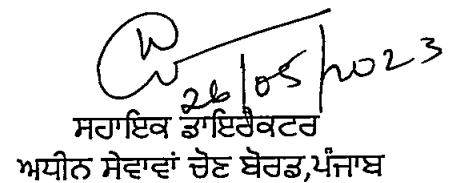 26/05/2023
ਸਹਾਇਕ ਡਾਇਰੈਕਟਰ
ਅਧੀਨ ਸੇਵਾਵਾਂ ਚੋਣ ਬੋਰਡ,ਪੰਜਾਬ